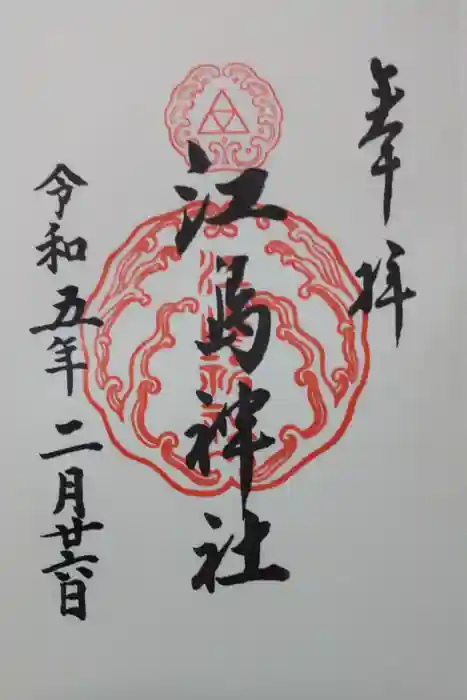 奉拝
江島神社
令和五年二月廿六日